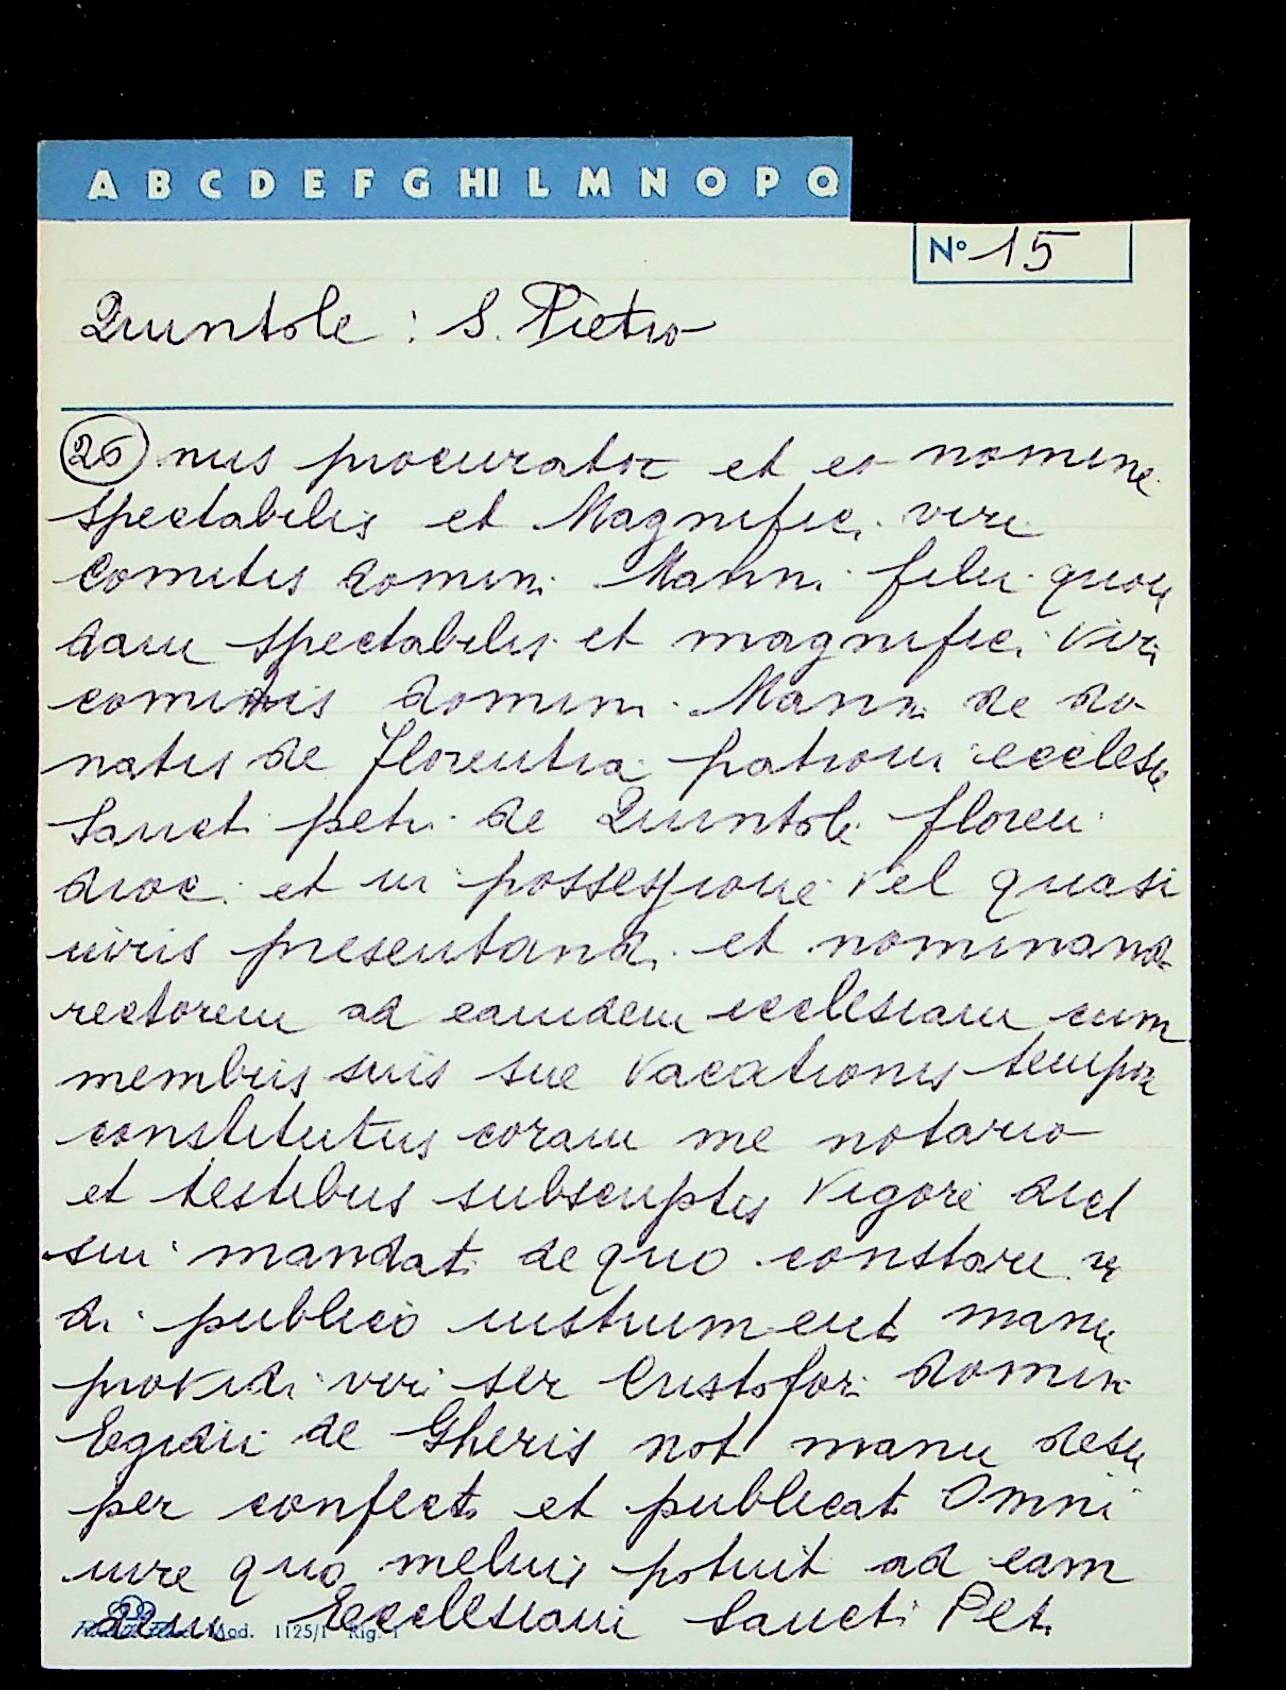 A B C D E F G HI L M N O P Q
Nº 15
Quintole : S. Pietro
26 nus procurator et eo nomine
spectabilis et Magnifici viri
Comitis domini Manni filii quon
dam spectabilis et magnifici Viri
comitis domini Manni de do
natis de Florentia patroni ecclesie
Sancti petri de Quintole floren
dioc. et in possessione vel quasi
iuris presentandi et nominandi
rectorem ad eamdem ecclesiam cum
membris suis sue vacationis tempore
constitutus coram me notario
et testibus subscriptis Vigore dict
sui mandati de quo constare
di publico instrumento manu
providi viri ser Cristofori domini
Egidii de Gheris not manu desu
per confecto et publicat Omni
iure quo melius potuit ad eam
dem Ecclesiam Sancti Pet.
Mod. 1125/1 Rig. 1